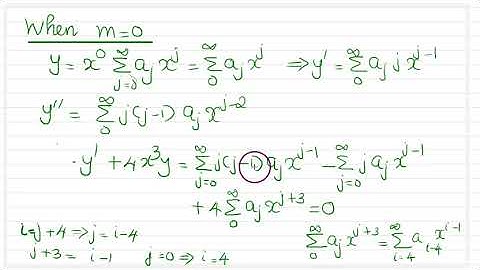 When m=0
y = x⁰ ∑_{j=0}^{∞} a_j x^j = ∑_{0}^{∞} a_j x^j ⇒ y' = ∑_{0}^{∞} a_j j x^{j-1}
y'' = ∑_{0}^{∞} j(j-1) a_j x^{j-2}
y' + 4x³y = ∑_{j=0}^{∞} j(j-1) a_j x^{j-1} - ∑_{j=0}^{∞} j a_j x^{j-1}
+ 4 ∑_{0}^{∞} a_j x^{j+3} = 0
i=j+4 ⇒ j=i-4
j+3 = i-1 j=0 ⇒ i=4
∑_{0}^{∞} a_j x^{j+3} = ∑_{i=4}^{∞} a_{i-4} x^{i-1}